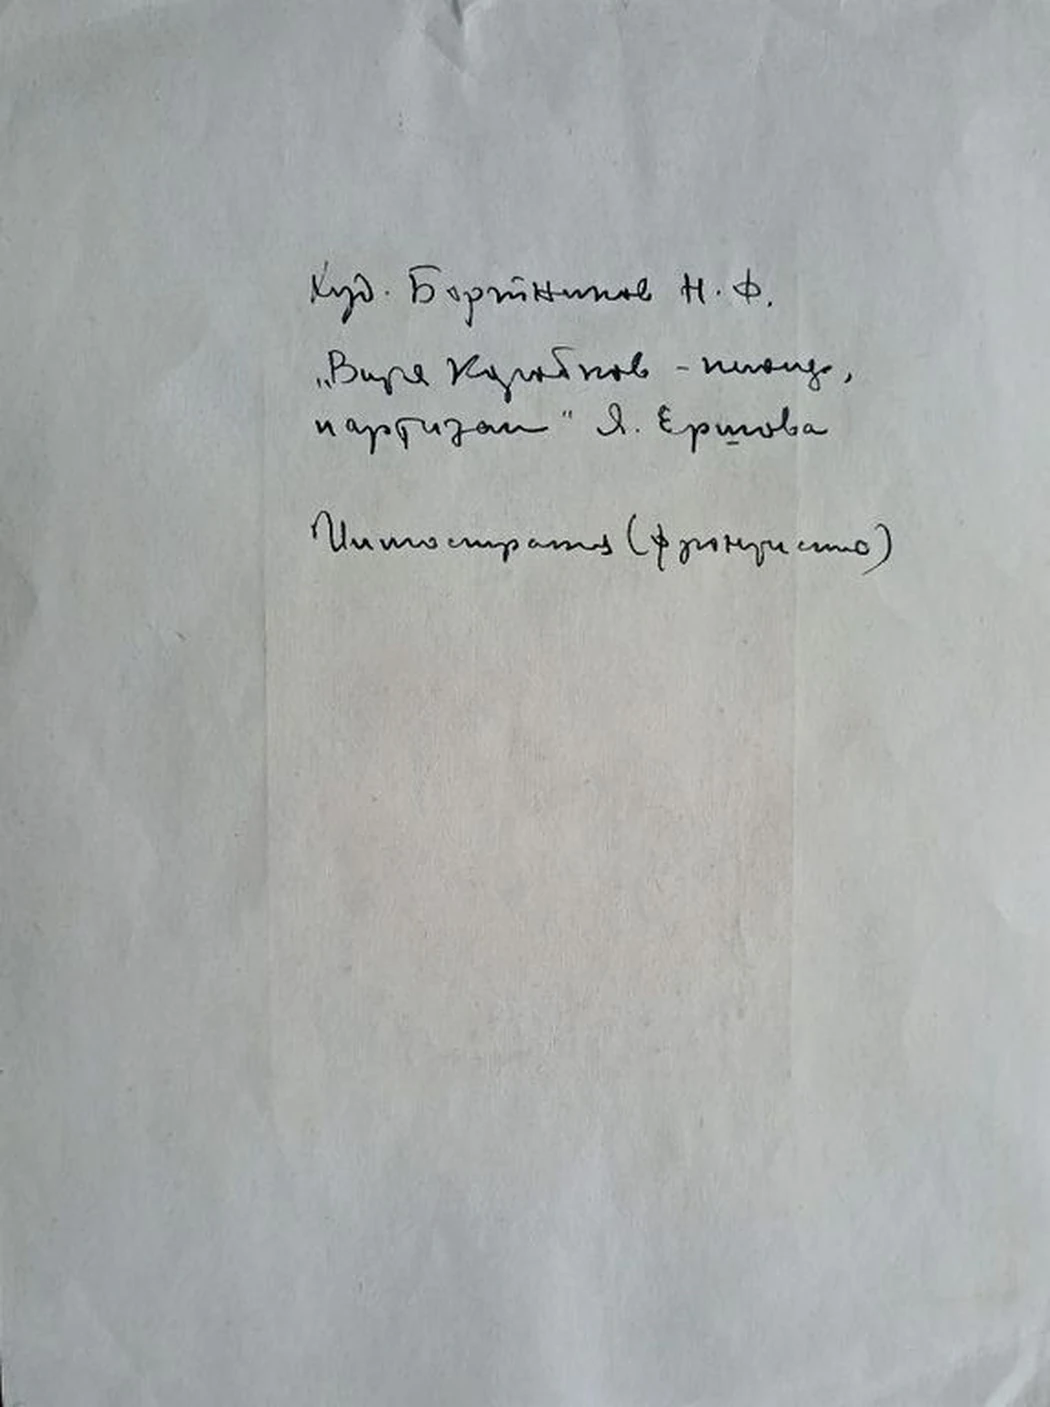 Худ. Бортников Н. Ф.
„Витя Коробков - пионер,
партизан" Я. Ершова
Иллюстрация (фронтиспис)